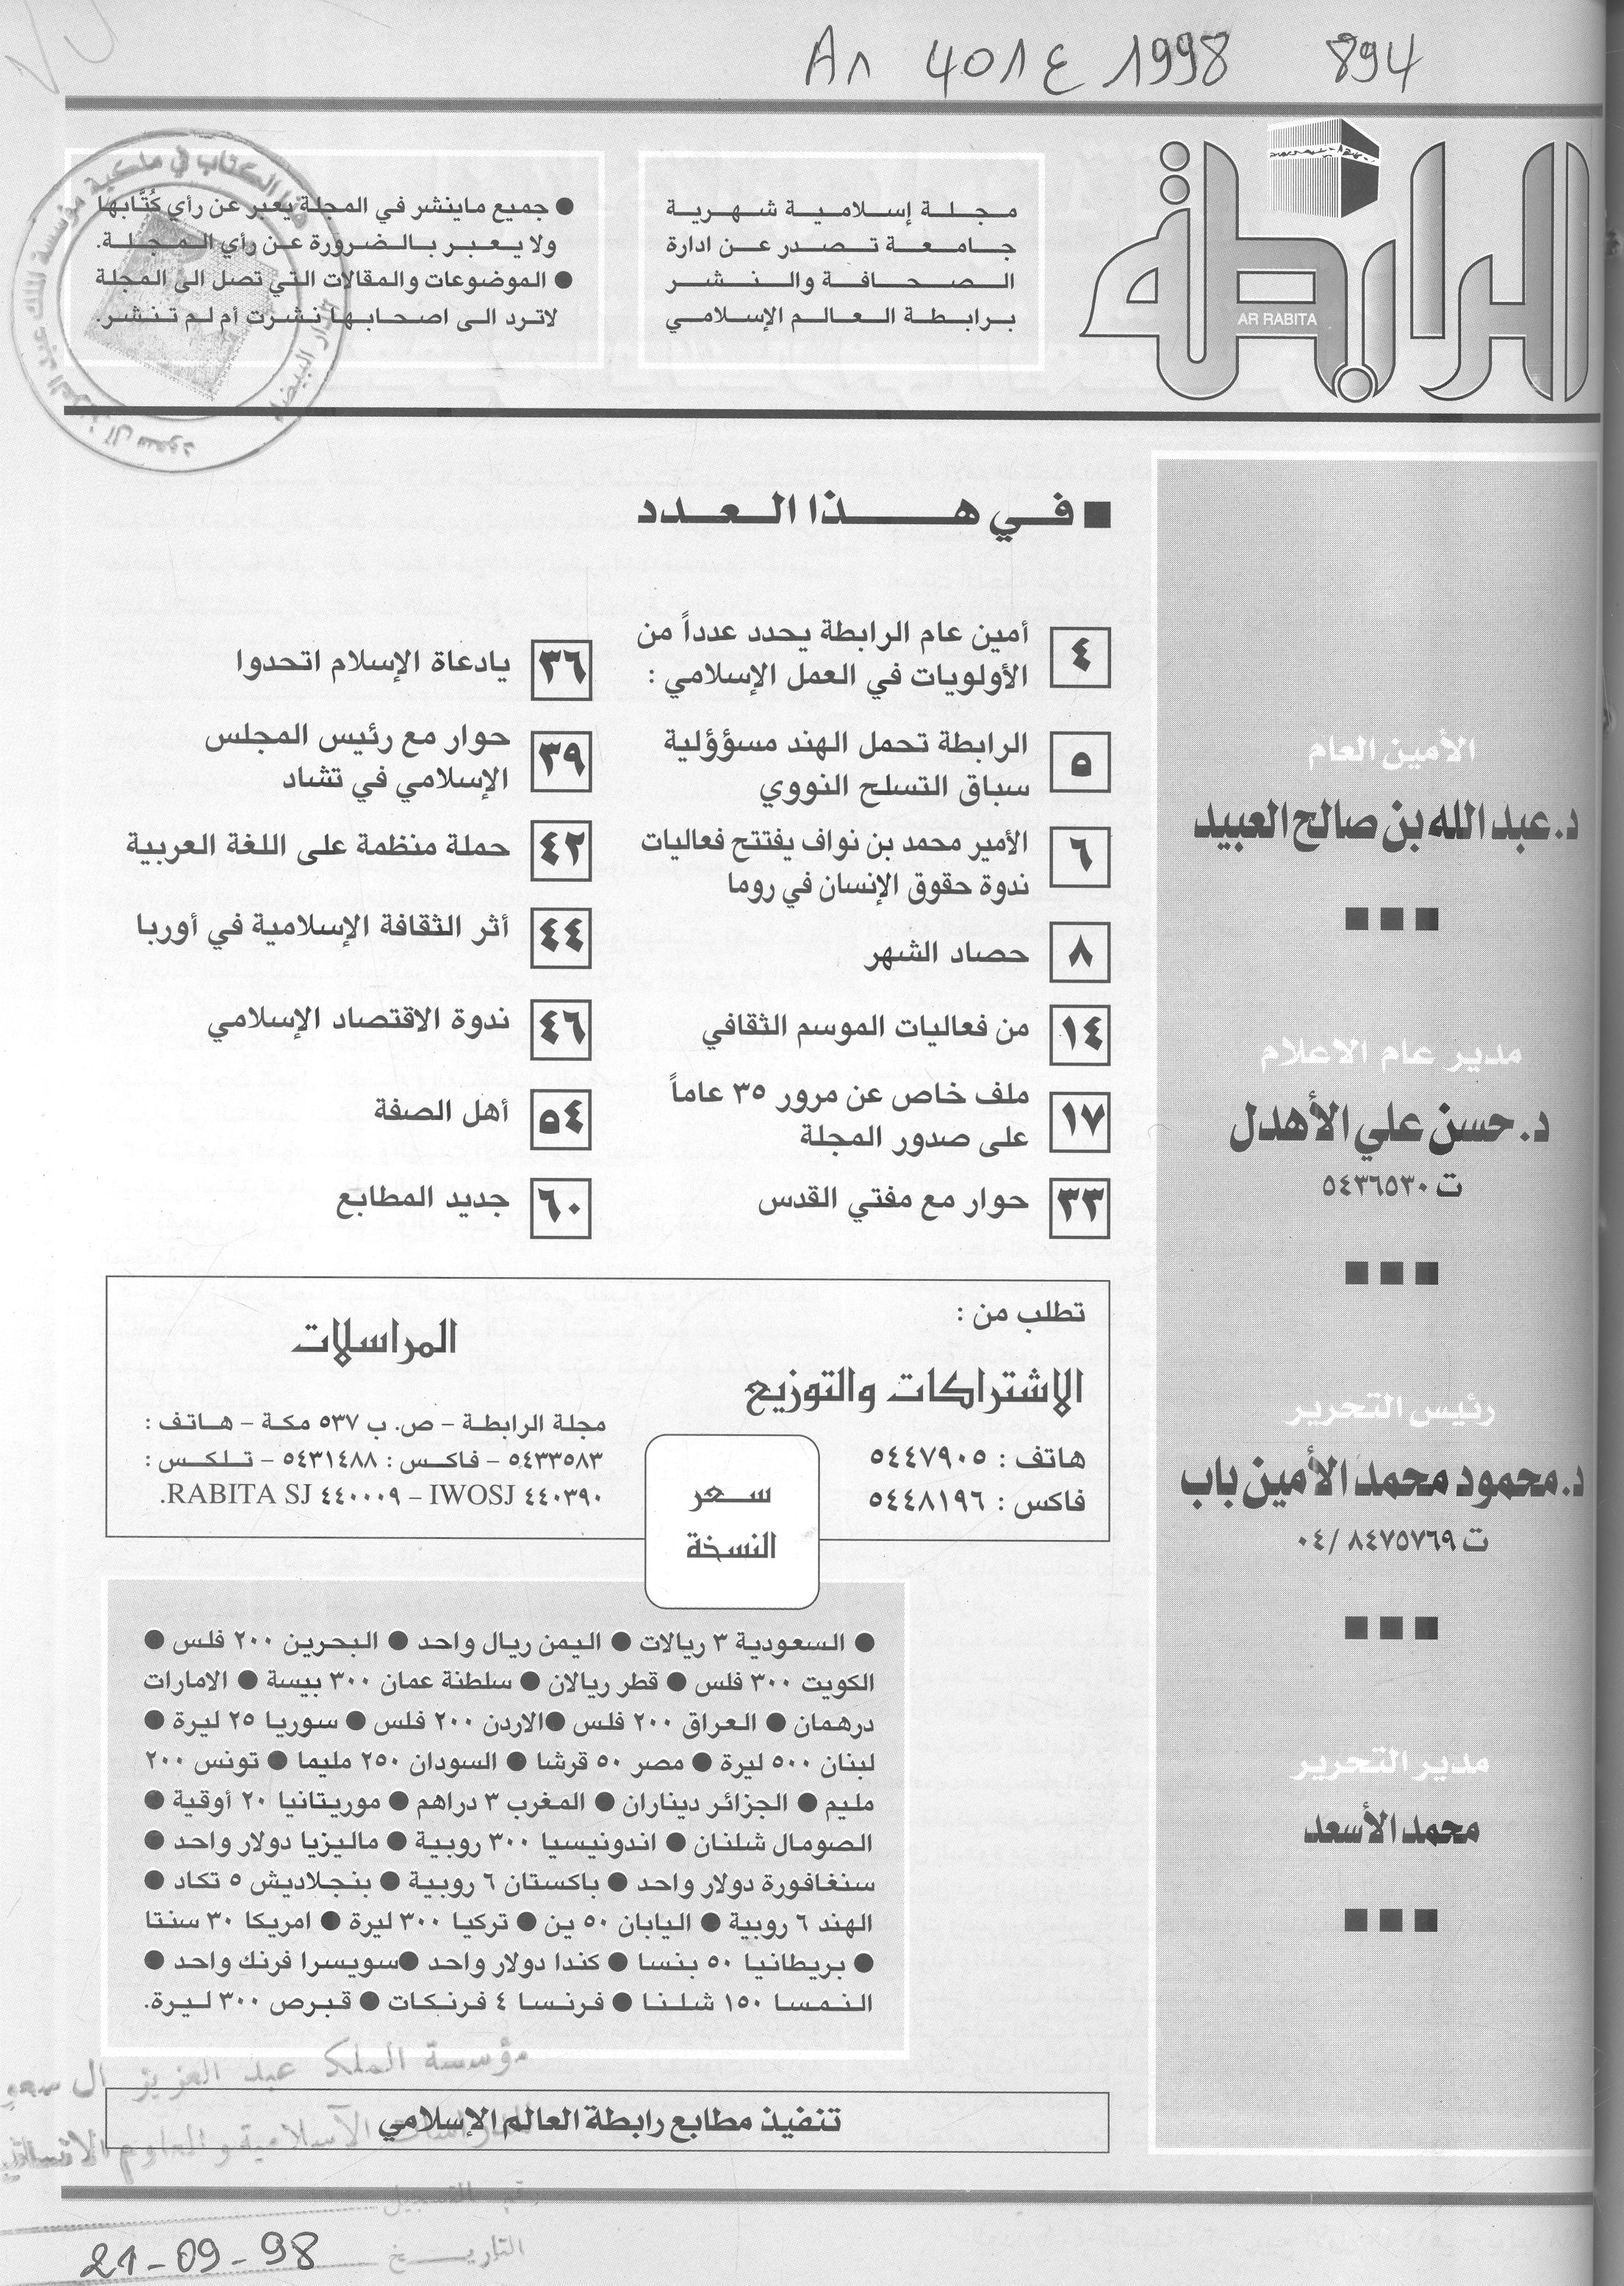 An 401 ع 1998 894
الرابطة
AR RABITA
مجلة إسلامية شهرية
جامعة تصدر عن ادارة
الصحافة والنشر
برابطة العالم الإسلامي
● جميع ماينشر في المجلة يعبر عن رأي كُتَّابها
ولا يعبر بالضرورة عن رأي المجلة.
● الموضوعات والمقالات التي تصل الى المجلة
لاترد الى اصحابها نشرت أم لم تنشر.
هذا الكتاب في ملكية مؤسسة الملك عبد العزيز ال سعود
الدار البيضاء
الأمين العام
د. عبد الله بن صالح العبيد
مدير عام الاعلام
د. حسن علي الأهدل
ت ٥٤٣٦٥٣٠
رئيس التحرير
د. محمود محمد الأمين باب
ت ٨٤٧٥٧٦٩ /٠٤
مدير التحرير
محمد الأسعد
■ في هذا العدد
٤ أمين عام الرابطة يحدد عدداً من
الأولويات في العمل الإسلامي :
٥ الرابطة تحمل الهند مسؤؤلية
سباق التسلح النووي
٦ الأمير محمد بن نواف يفتتح فعاليات
ندوة حقوق الإنسان في روما
٨ حصاد الشهر
١٤ من فعاليات الموسم الثقافي
١٧ ملف خاص عن مرور ٣٥ عاماً
على صدور المجلة
٣٣ حوار مع مفتي القدس
٣٦ يادعاة الإسلام اتحدوا
٣٩ حوار مع رئيس المجلس
الإسلامي في تشاد
٤٢ حملة منظمة على اللغة العربية
٤٤ أثر الثقافة الإسلامية في أوربا
٤٦ ندوة الاقتصاد الإسلامي
٥٤ أهل الصفة
٦٠ جديد المطابع
تطلب من :
الإشتراكات والتوزيع
هاتف : ٥٤٤٧٩٠٥
فاكس : ٥٤٤٨١٩٦
المراسلات
مجلة الرابطة – ص. ب ٥٣٧ مكة – هاتف :
٥٤٣٣٥٨٣ – فاكس : ٥٤٣١٤٨٨ – تلكس :
٤٤٠٣٩٠ IWOSJ – ٤٤٠٠٠٩ RABITA SJ.
سعر
النسخة
● السعودية ٣ ريالات ● اليمن ريال واحد ● البحرين ٢٠٠ فلس ●
الكويت ٣٠٠ فلس ● قطر ريالان ● سلطنة عمان ٣٠٠ بيسة ● الامارات
درهمان ● العراق ٢٠٠ فلس ●الاردن ٢٠٠ فلس ● سوريا ٢٥ ليرة ●
لبنان ٥٠٠ ليرة ● مصر ٥٠ قرشا ● السودان ٢٥٠ مليما ● تونس ٢٠٠
مليم ● الجزائر ديناران ● المغرب ٣ دراهم ● موريتانيا ٢٠ أوقية ●
الصومال شلنان ● اندونيسيا ٣٠٠ روبية ● ماليزيا دولار واحد ●
سنغافورة دولار واحد ● باكستان ٦ روبية ● بنجلاديش ٥ تكاد ●
الهند ٦ روبية ● اليابان ٥٠ ين ● تركيا ٣٠٠ ليرة ● امريكا ٣٠ سنتا
● بريطانيا ٥٠ بنسا ● كندا دولار واحد ●سويسرا فرنك واحد ●
النمسا ١٥٠ شلنا ● فرنسا ٤ فرنكات ● قبرص ٣٠٠ ليرة.
مؤسسة الملك عبد العزيز ال سعو
تنفيذ مطابع رابطة العالم الإسلامي
الاسلامية و العلوم الانسانية
رقم التسجيل
التاريخ 21-09-98